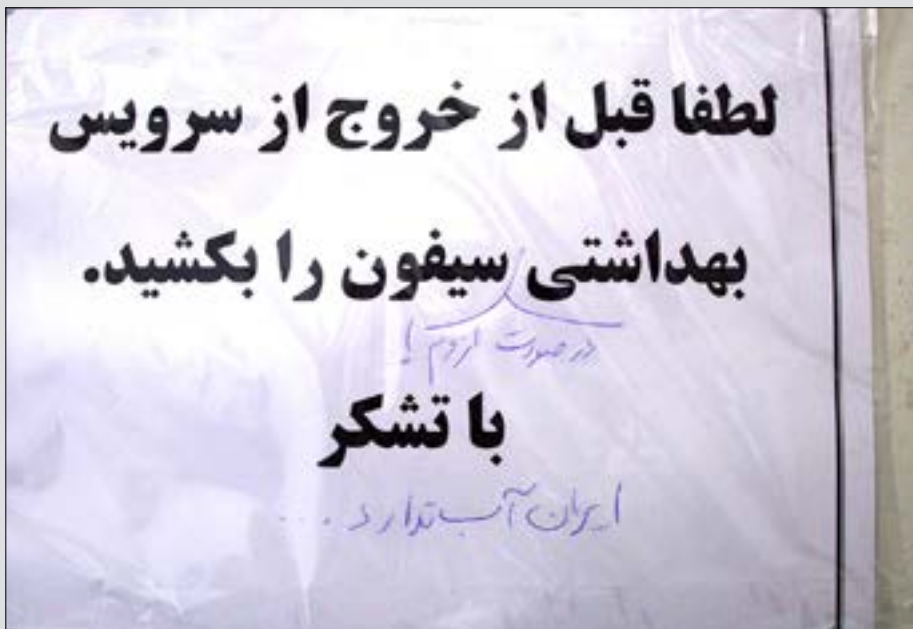 لطفا قبل از خروج از سرویس
بهداشتی سیفون را بکشید.
در صورت لزوم!
با تشکر
ایران آب ندارد...